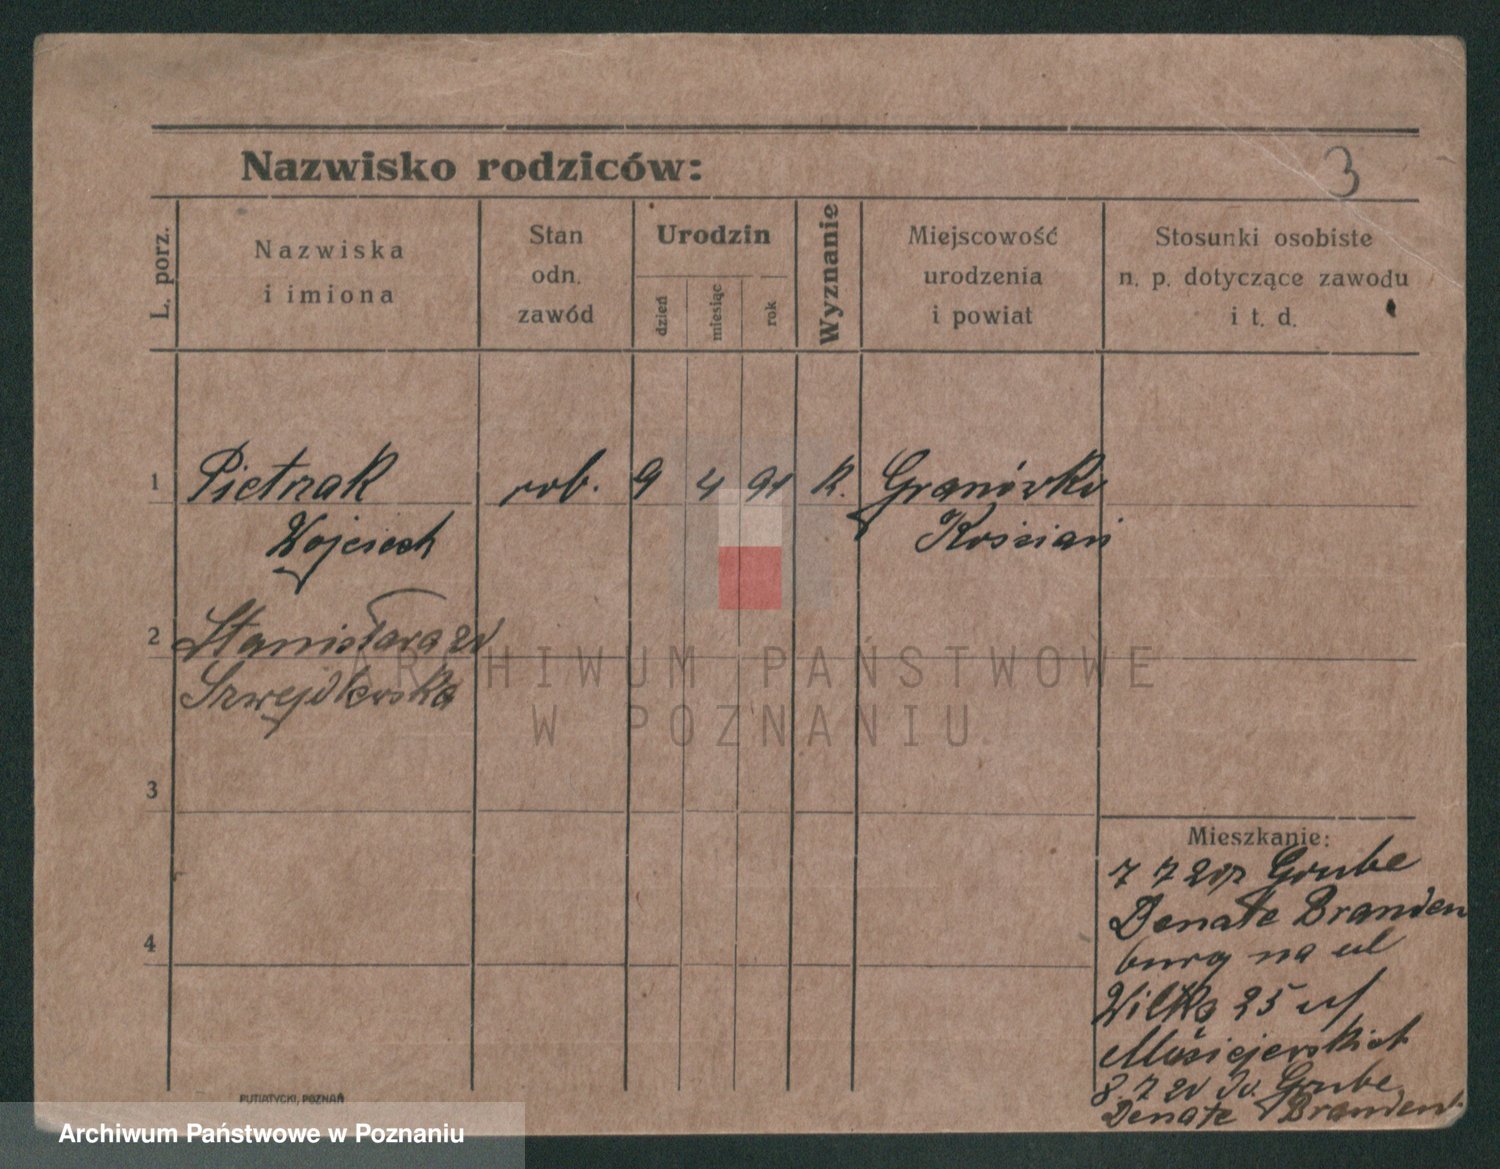 Nazwisko rodziców:
3
L. porz.
Nazwiska
i imiona
Stan
odn.
zawód
Urodzin
dzień
miesiąc
rok
Wyznanie
Miejscowość
urodzenia
i powiat
Stosunki osobiste
n. p. dotyczące zawodu
i t. d.
1 Pietrzak rob. 9 4 91 k. Granówko
Wojciech Kościan
2 Stanisława zd
Szwejkowska
3
4
Mieszkanie:
7 7 20 Grube
Denate Branden
burg na ul
Wilka 25 u/
8. 7 20 Grube
Denate Brandenb.
PUTIATYCKI, POZNAŃ
ARCHIWUM PAŃSTWOWE
W POZNANIU
Archiwum Państwowe w Poznaniu